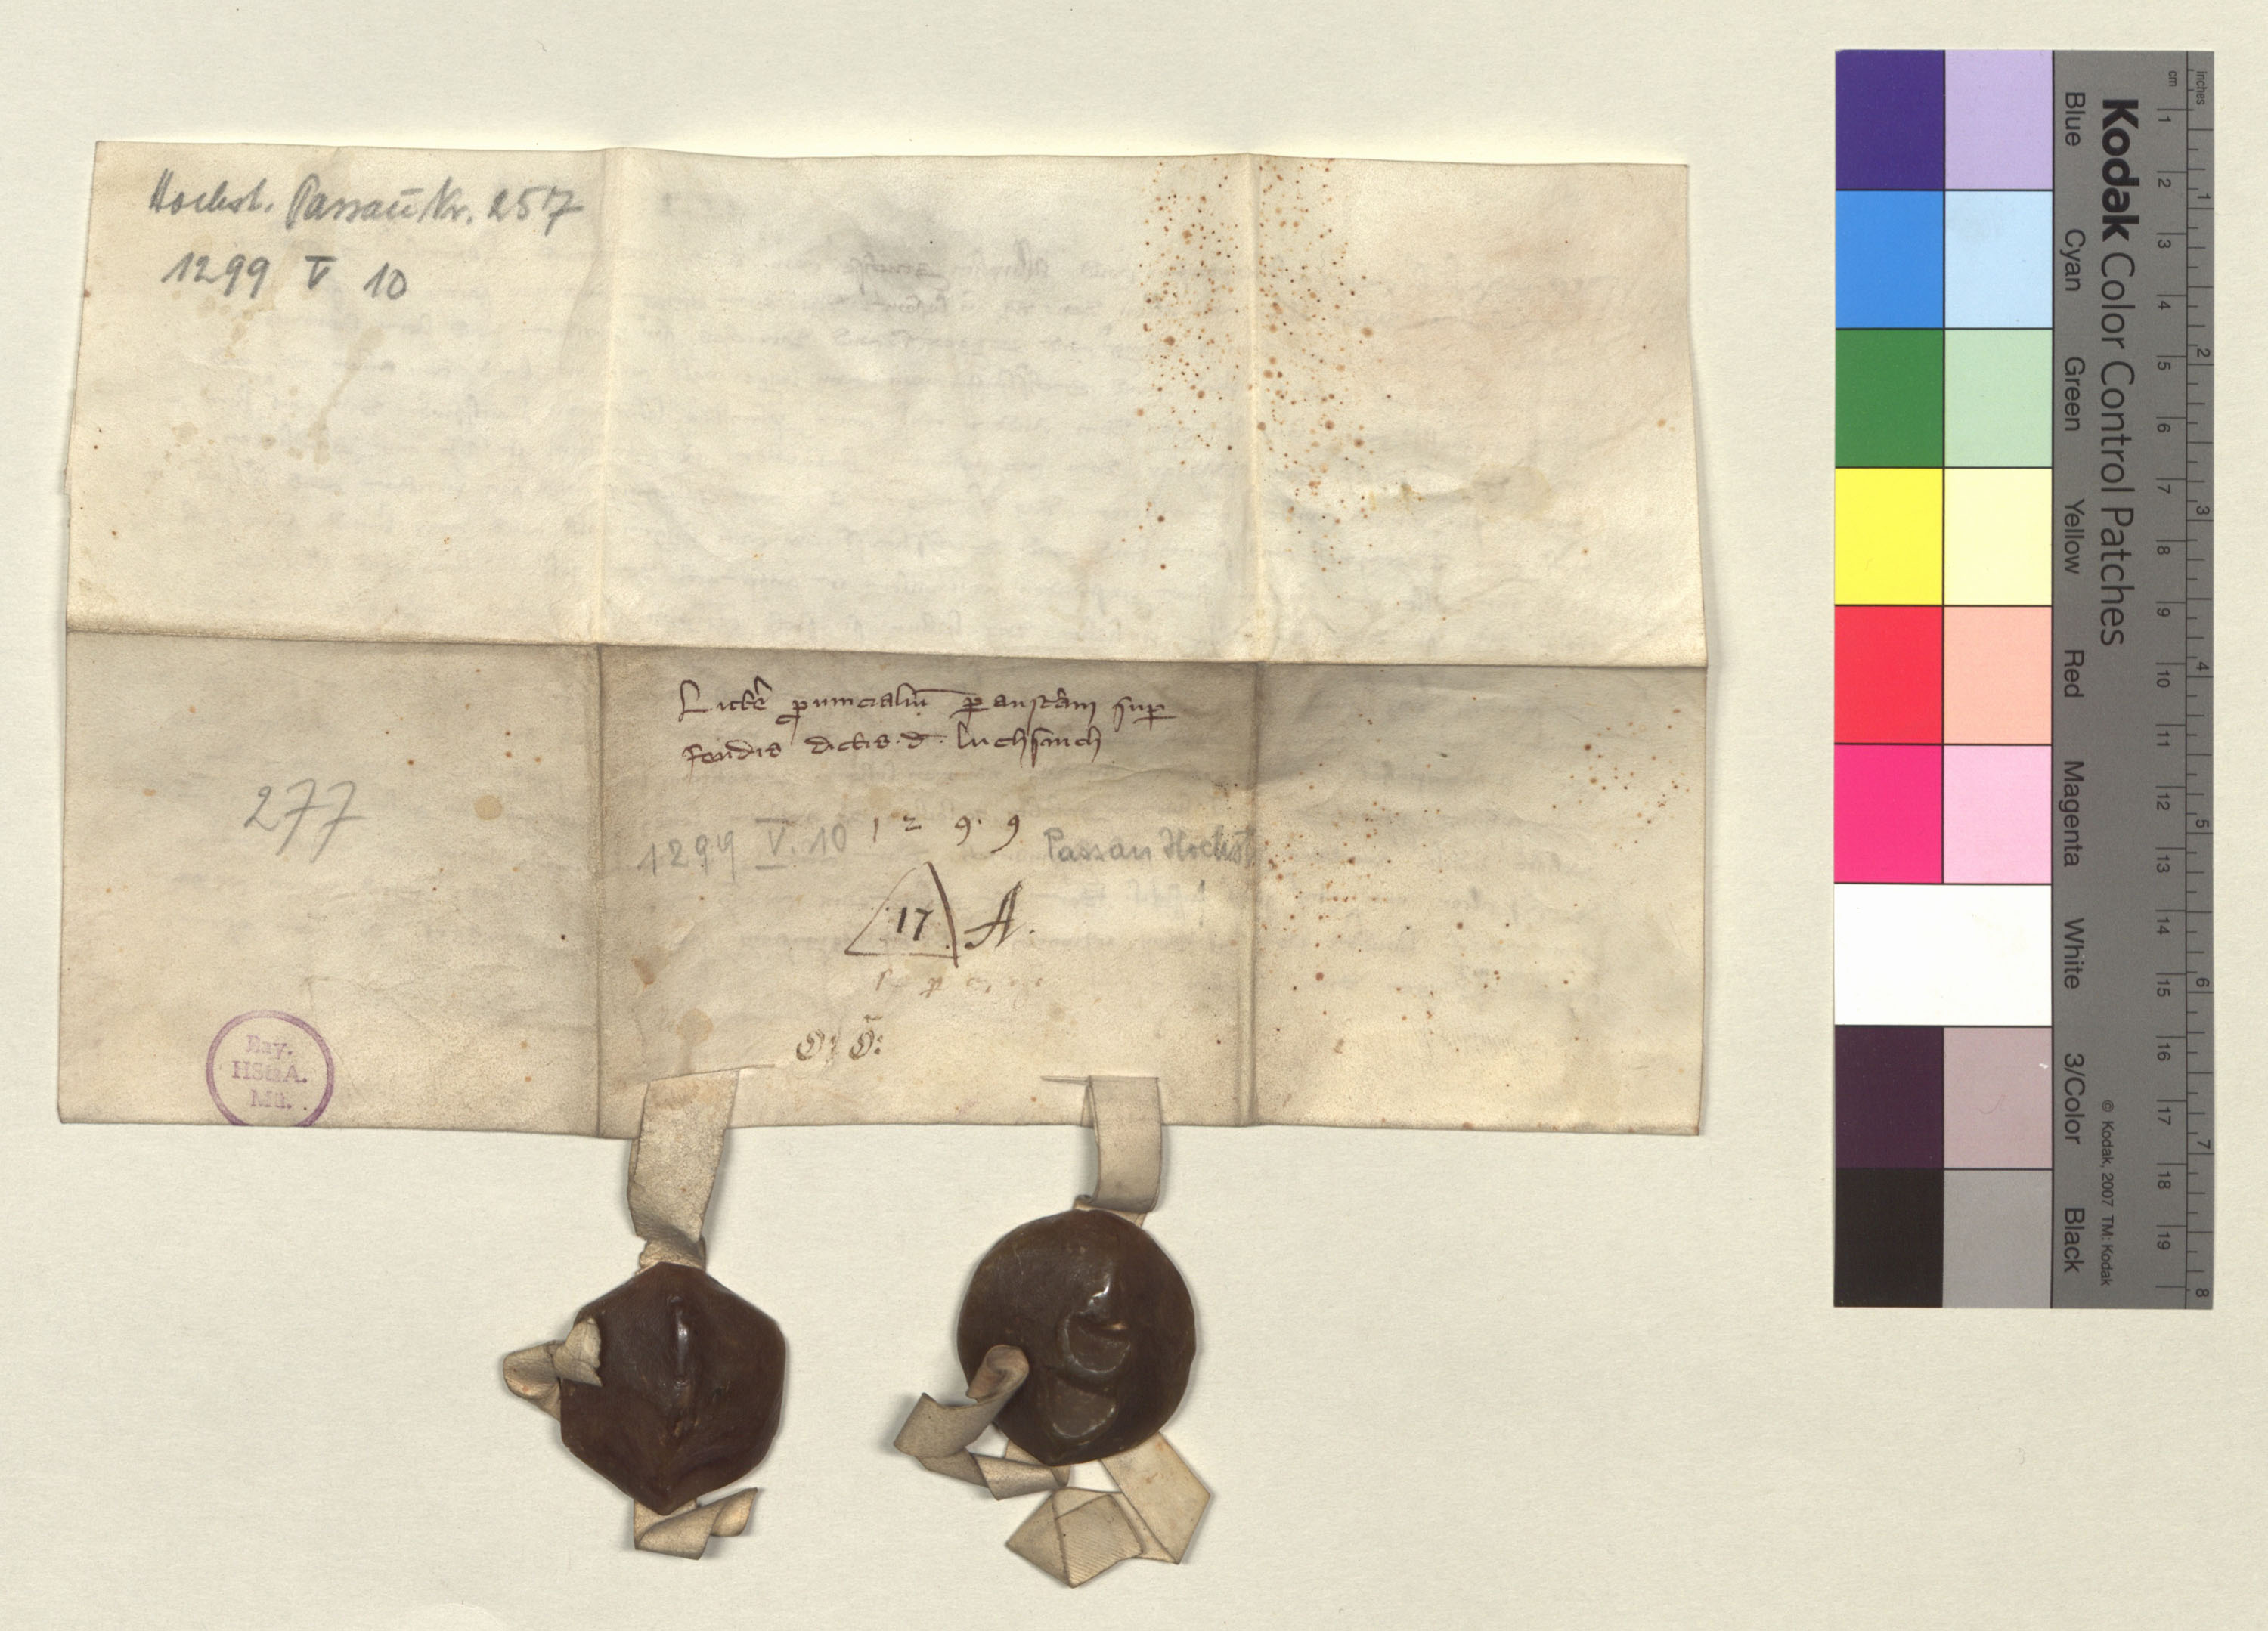 Hochst. Passau Nr. 257
1299 V 10
Lictẽ ꝓuincialiũ ꝑ austãm suꝑ
feudis dictis d. luchsnich
277
1299 V. 10
1 2 9. 9
Passau Hochst
17 A.
O: Õ:
Bay.
HStA.
Mü.
Kodak Color Control Patches
Blue Cyan Green Yellow Red Magenta White 3/Color Black
© Kodak, 2007 TM: Kodak
cm 1 2 3 4 5 6 7 8 9 10 11 12 13 14 15 16 17 18 19
inches 1 2 3 4 5 6 7 8